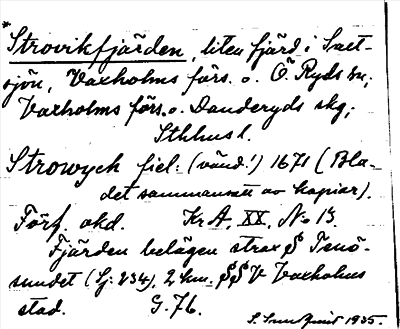 * Strovikfjärden, liten fjärd i Salt-
sjön, Vaxholms förs. o. Ö. Ryds sn;
Vaxholms förs. o. Danderyds skg;
Sthlms l.
Strowych fiel: (vänd!) 1671 (Bla-
det sammansatt av kopior).
Förf. okd. KrA, XX, No 13.
Fjärden belägen strax S Tenö-
sundet (Lj. 234), 2 km. SSV Vaxholms
stad. G. 76.
1935.